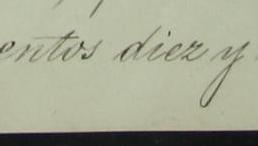 entos diez y